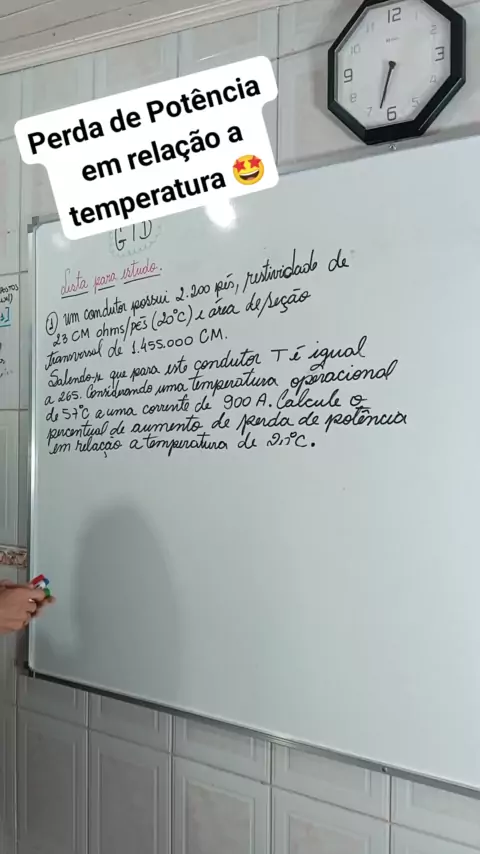 Perda de Potência
em relação a
temperatura 🤩
12
3
6
9
GTD
Lista para estudo.
① um condutor possui 2.200 pés, restividade de
23 CM ohms/pés (20°C) e área de seção
transversal de 1.455.000 CM.
Sabendo-se que para este condutor T é igual
a 265. Considerando uma temperatura operacional
de 57°C a uma corrente de 900 A. Calcule o
percentual de aumento de perda de potência
em relação a temperatura de 27°C.